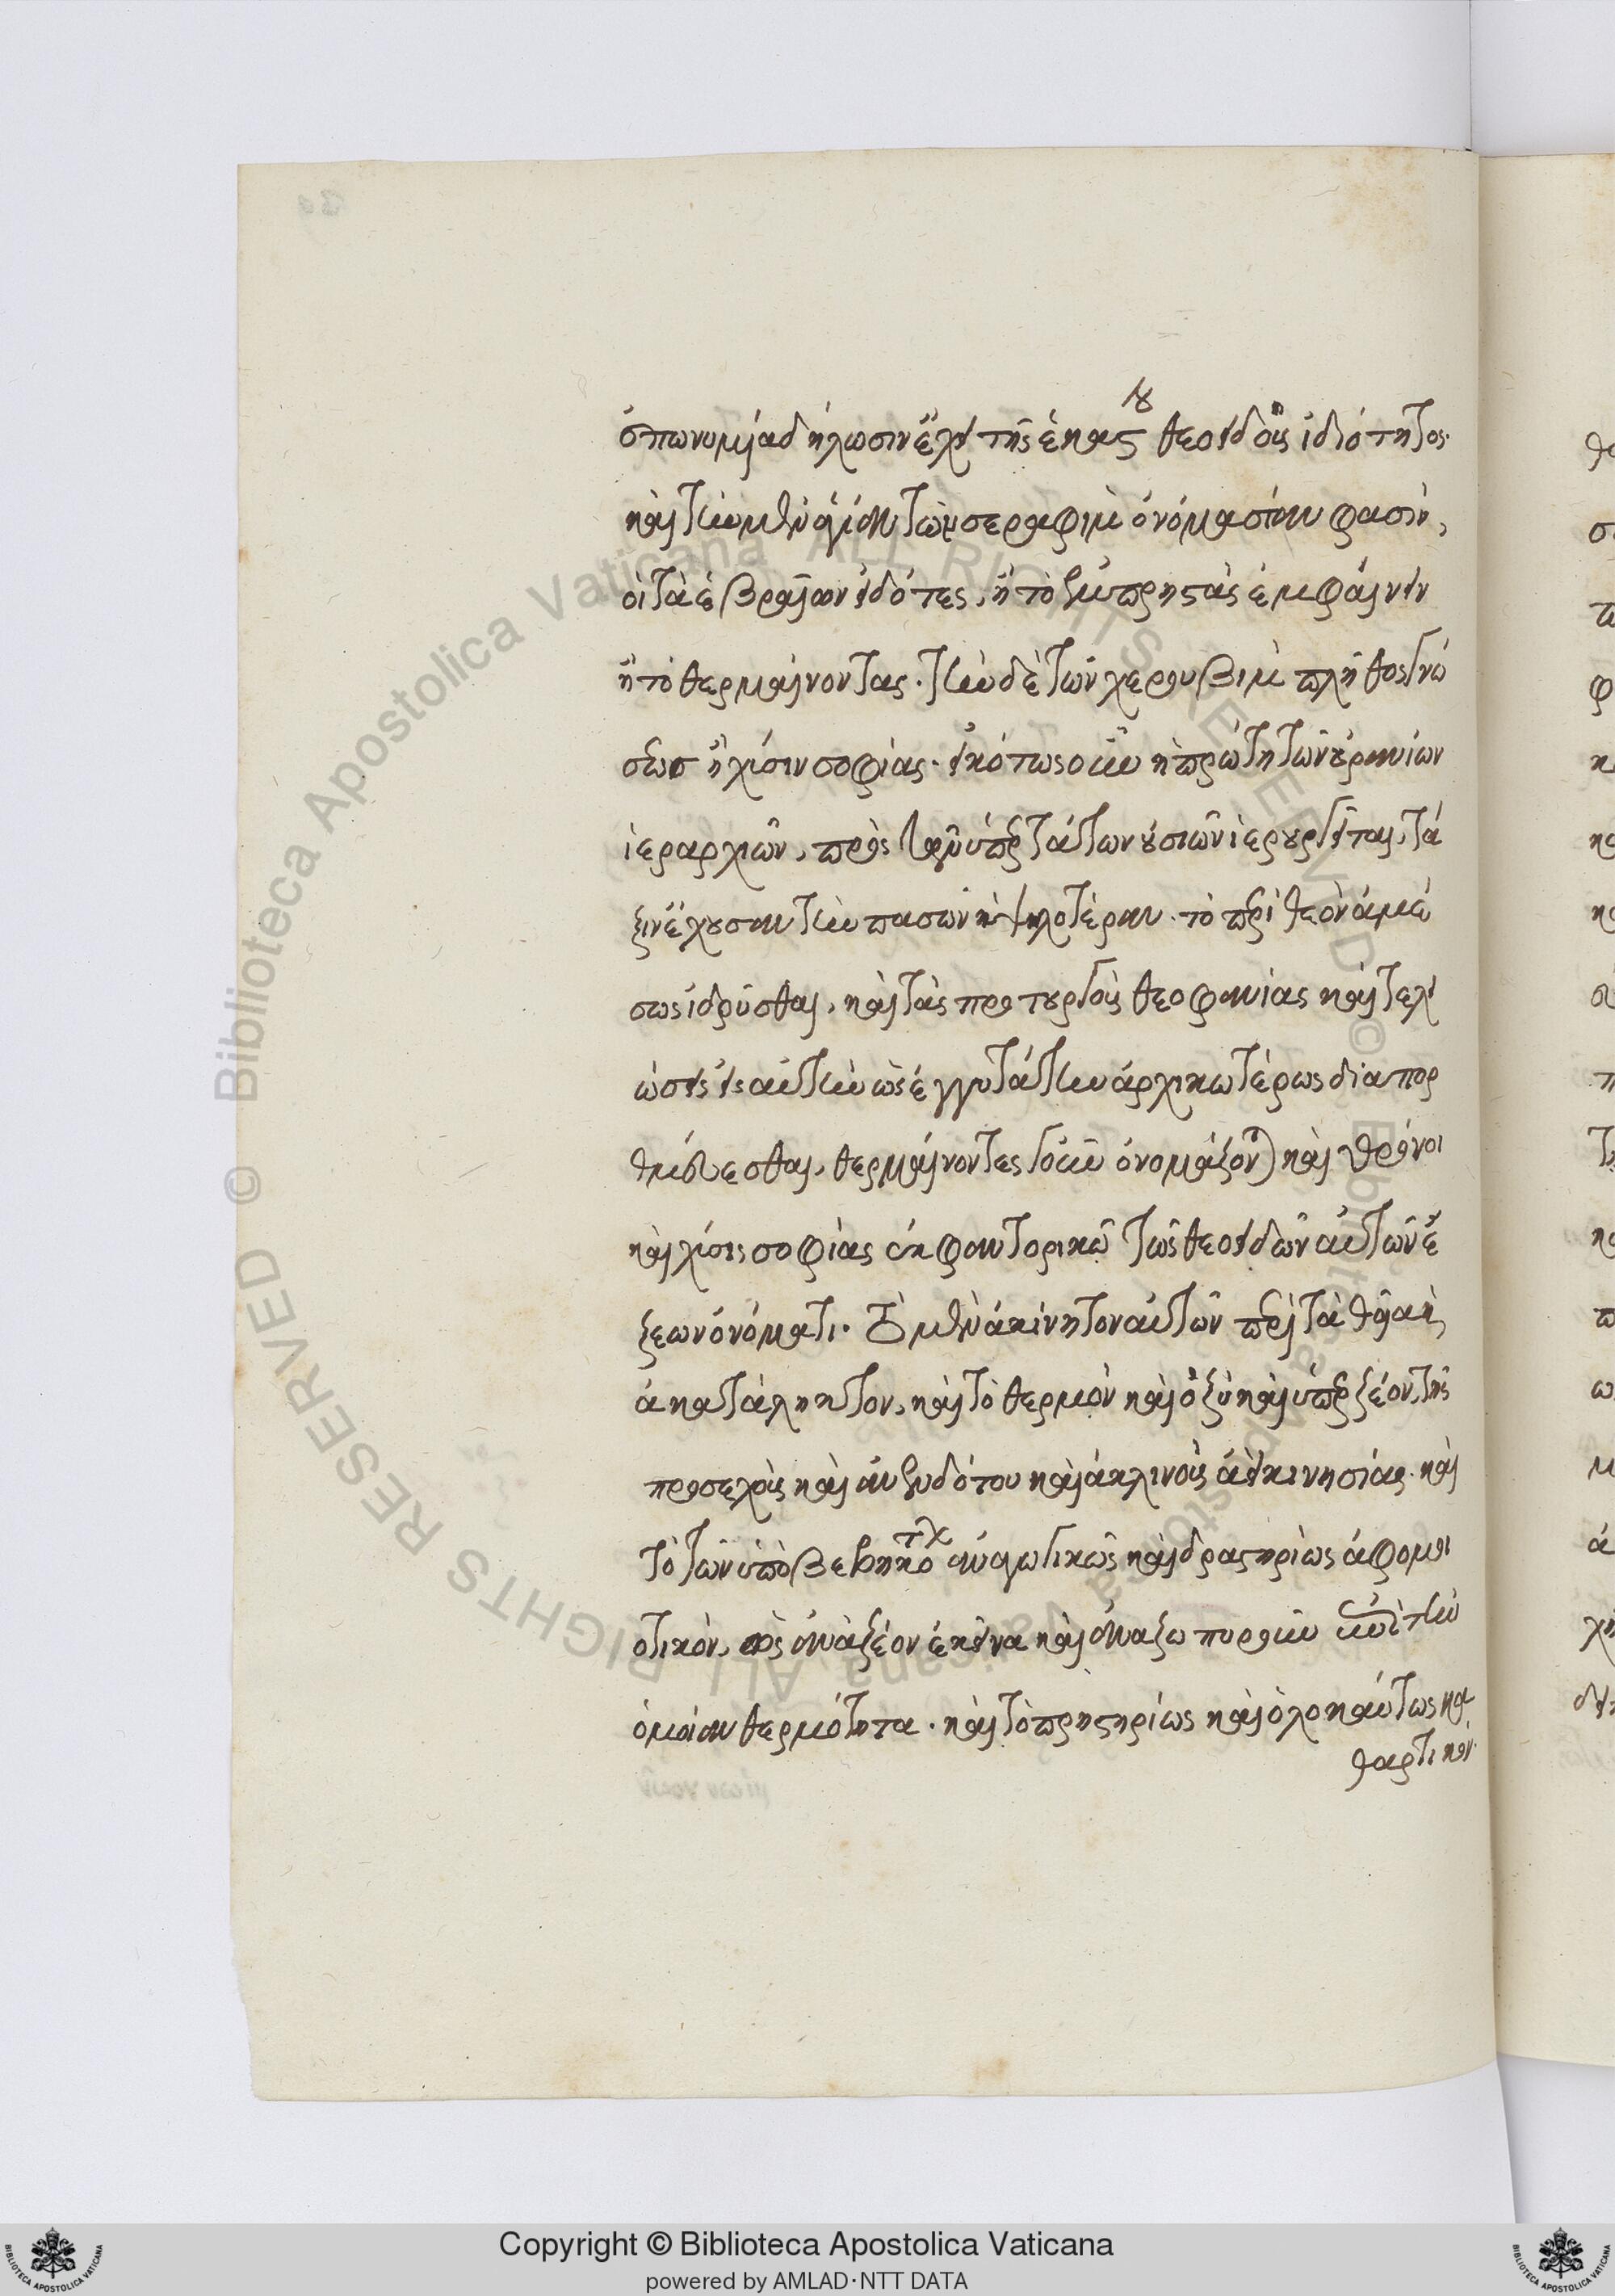 ἐπωνυμία δήλωσιν ἔχει τῆς ἑκάστου θεοειδοῦς ἰδιότητος·
καὶ τὴν μὲν ἁγίαν τῶν σεραφὶμ ὀνομασίαν φασὶν,
οἱ τὰ ἑβραίων εἰδότες, ἢ τὸ ἐμπρηστὰς ἐμφαίνειν
ἢ τὸ θερμαίνοντας. τὴν δὲ τῶν χερουβὶμ πλῆθος γνώ
σεως ἢ χύσιν σοφίας. εἰκότως οὖν ἡ πρώτη τῶν οὐρανίων
ἱεραρχιῶν, πρὸς τῶν ὑπερτάτων οὐσιῶν ἱερουργεῖται, τά
ξιν ἔχουσαν τὴν πασῶν ὑψηλοτέραν. τὸ περὶ θεὸν ἀμέ
σως ἱδρύσθαι, καὶ τὰς πρωτουργοὺς θεοφανίας καὶ τελει
ώσεις εἰς αὐτὴν ὡς ἐγγυτάτην ἀρχικωτέρως διαπορ
θμεύεσθαι, θερμαίνοντες γοῦν ὀνομάζονται καὶ θρόνοι
καὶ χύσις σοφίας ἐκφαντορικῶ τῶν θεοειδῶν αὐτῶν ἕ
ξεων ὀνόματι. Τὸ μὲν ἀεικίνητον αὐτῶν περὶ τὰ θεῖα καὶ
ἀκατάληκτον, καὶ τὸ θερμὸν καὶ ὀξὺ καὶ ὑπερζέον τῆς
προσεχοῦς καὶ ἀνενδότου καὶ ἀκλινοῦς ἀεικινησίας. καὶ
τὸ τῶν ὑποβεβηκότων ἀναγωγικῶς καὶ δραστηρίως ἀφομοι
ωτικὸν, ὡς ἀναζέον ἐκεῖνα καὶ ἀναζωπυροῦν ἐπὶ τὴν
ὁμοίαν θερμότητα. καὶ τὸ πρηστηρίως καὶ ὁλοκαύτως κα
θαρτικόν.